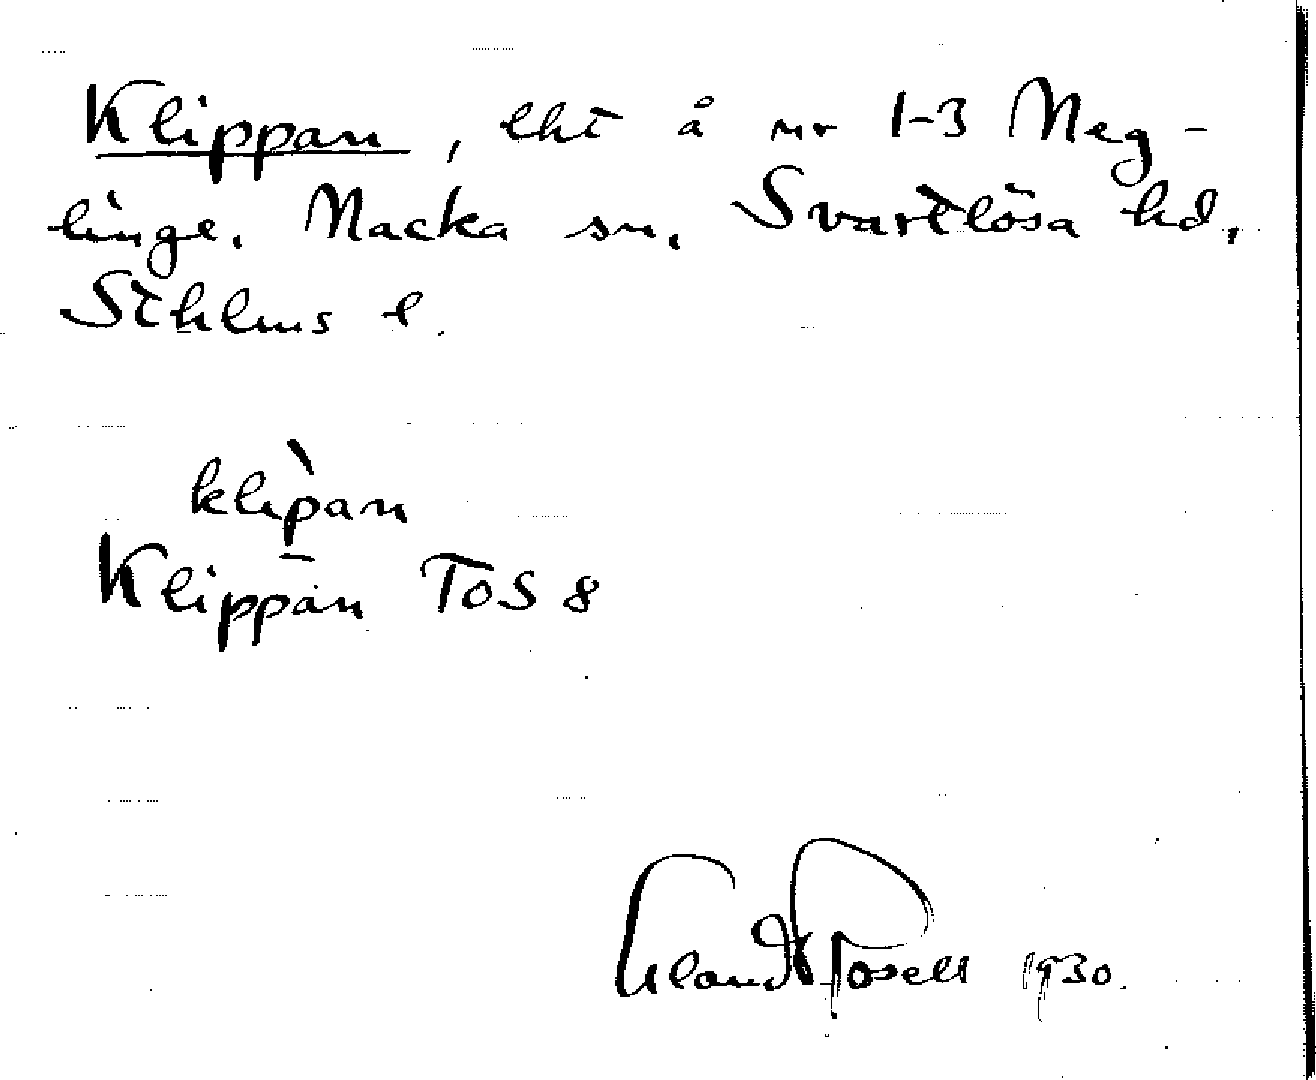 Klippan, lht å nr 1-3 Neg-
linge. Nacka sn. Svartlösa hd.
Sthlms l.
klìpan
Klippan TOS 8
Erland Rosell 1930.